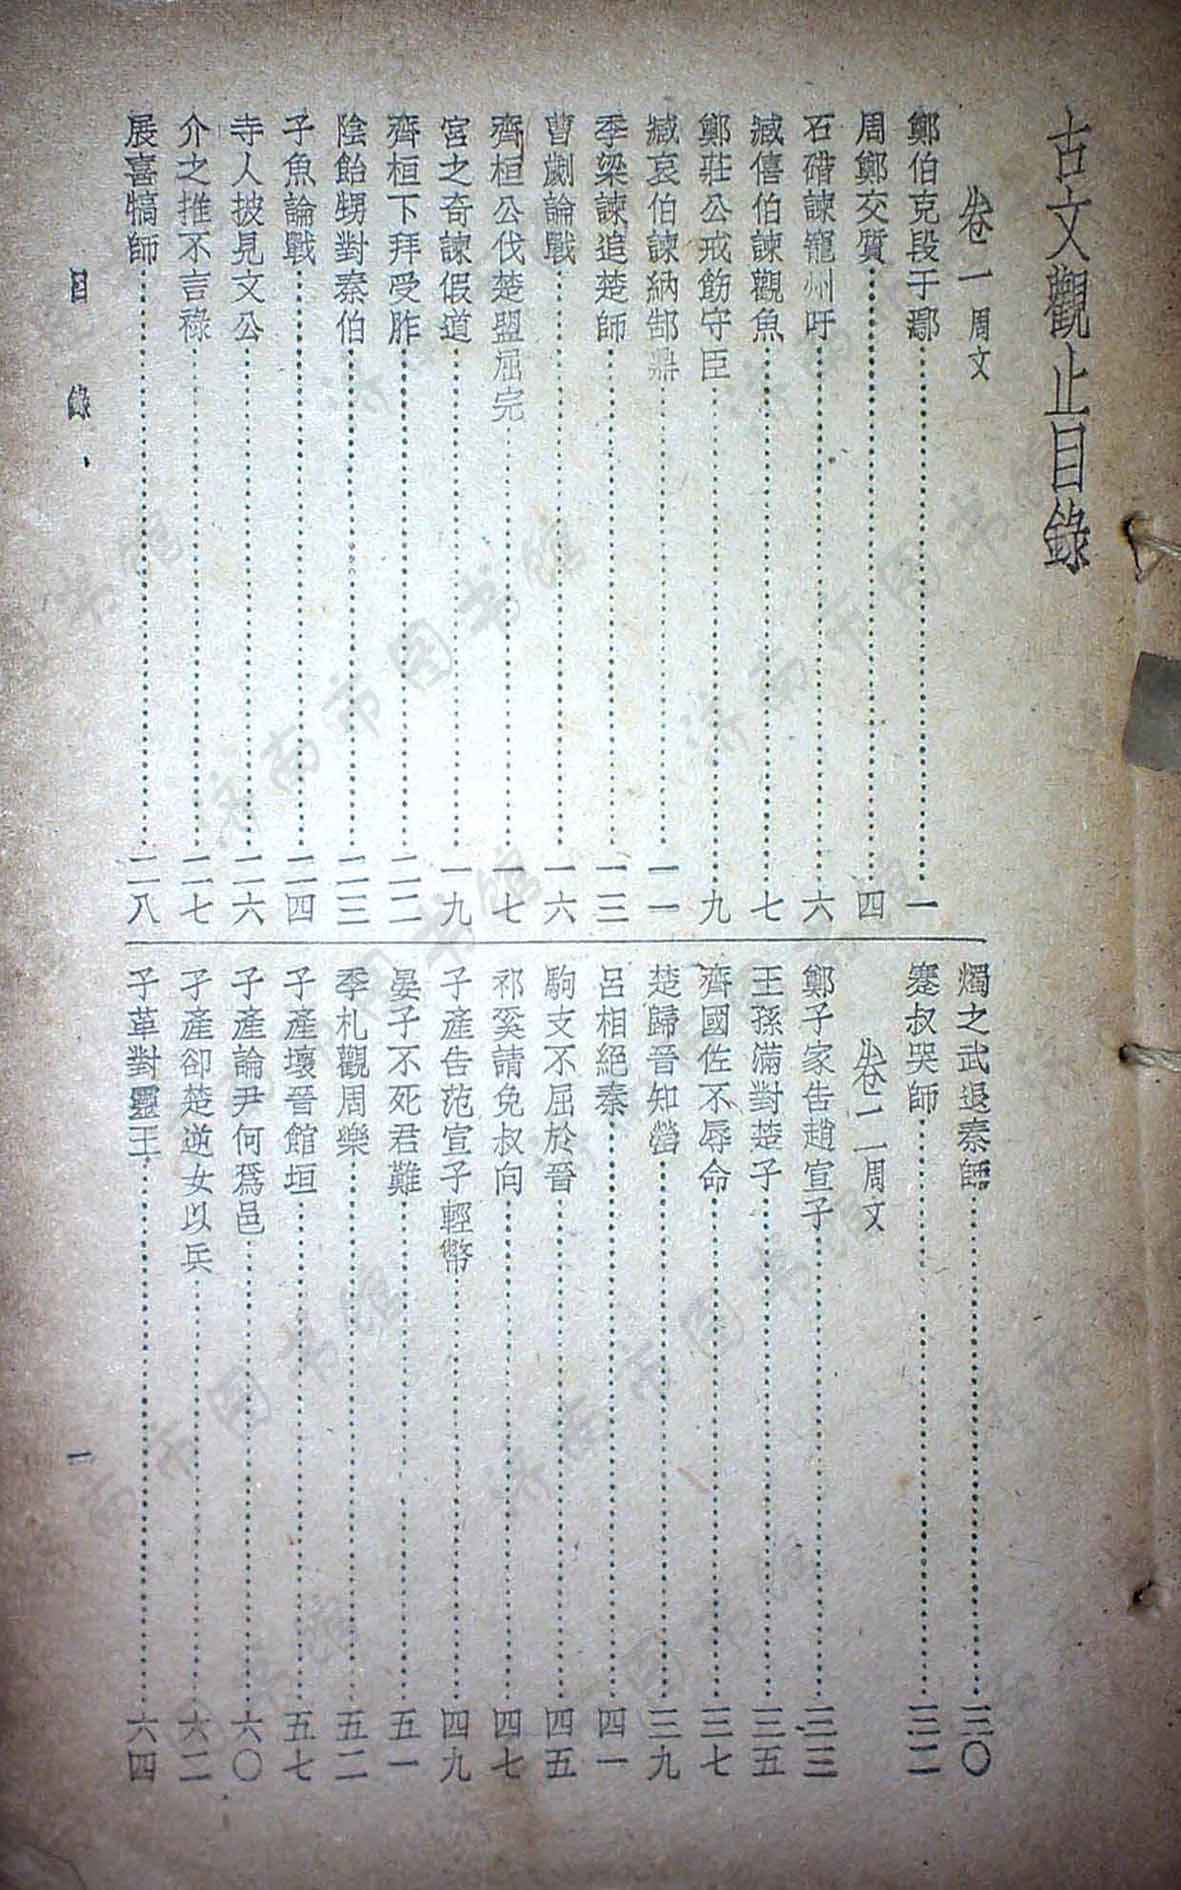 古文觀止目錄
卷一 周文
鄭伯克段于鄢……一
周鄭交質……四
石碏諫寵州吁……六
臧僖伯諫觀魚……七
鄭莊公戒飭守臣……九
臧哀伯諫納郜鼎……一一
季梁諫追楚師……一三
曹劌論戰……一六
齊桓公伐楚盟屈完……一七
宮之奇諫假道……一九
齊桓下拜受胙……二二
陰飴甥對秦伯……二三
子魚論戰……二四
寺人披見文公……二六
介之推不言祿……二七
展喜犒師……二八
燭之武退秦師……三〇
蹇叔哭師……三二
卷二 周文
鄭子家告趙宣子……三三
王孫滿對楚子……三五
齊國佐不辱命……三七
楚歸晉知罃……三九
呂相絕秦……四一
駒支不屈於晉……四五
祁奚請免叔向……四七
子產告范宣子輕幣……四九
晏子不死君難……五一
季札觀周樂……五二
子產壞晉館垣……五七
子產論尹何爲邑……六〇
子產卻楚逆女以兵……六二
子革對靈王……六四
目錄
一
济南市图书馆